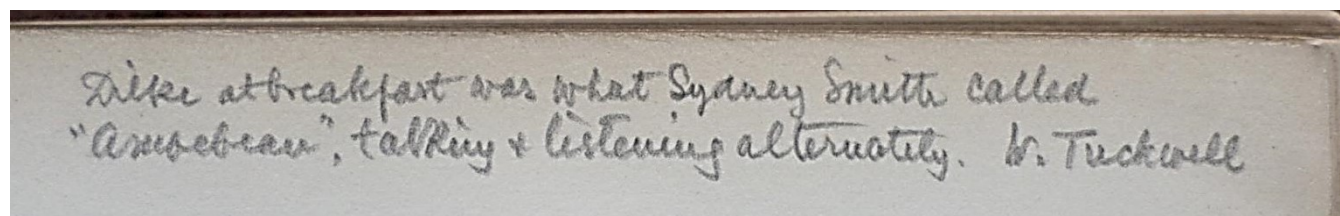 Dilke at breakfast was what Sydney Smith called
"Amoebean", talking & listening alternately. W. Tuckwell